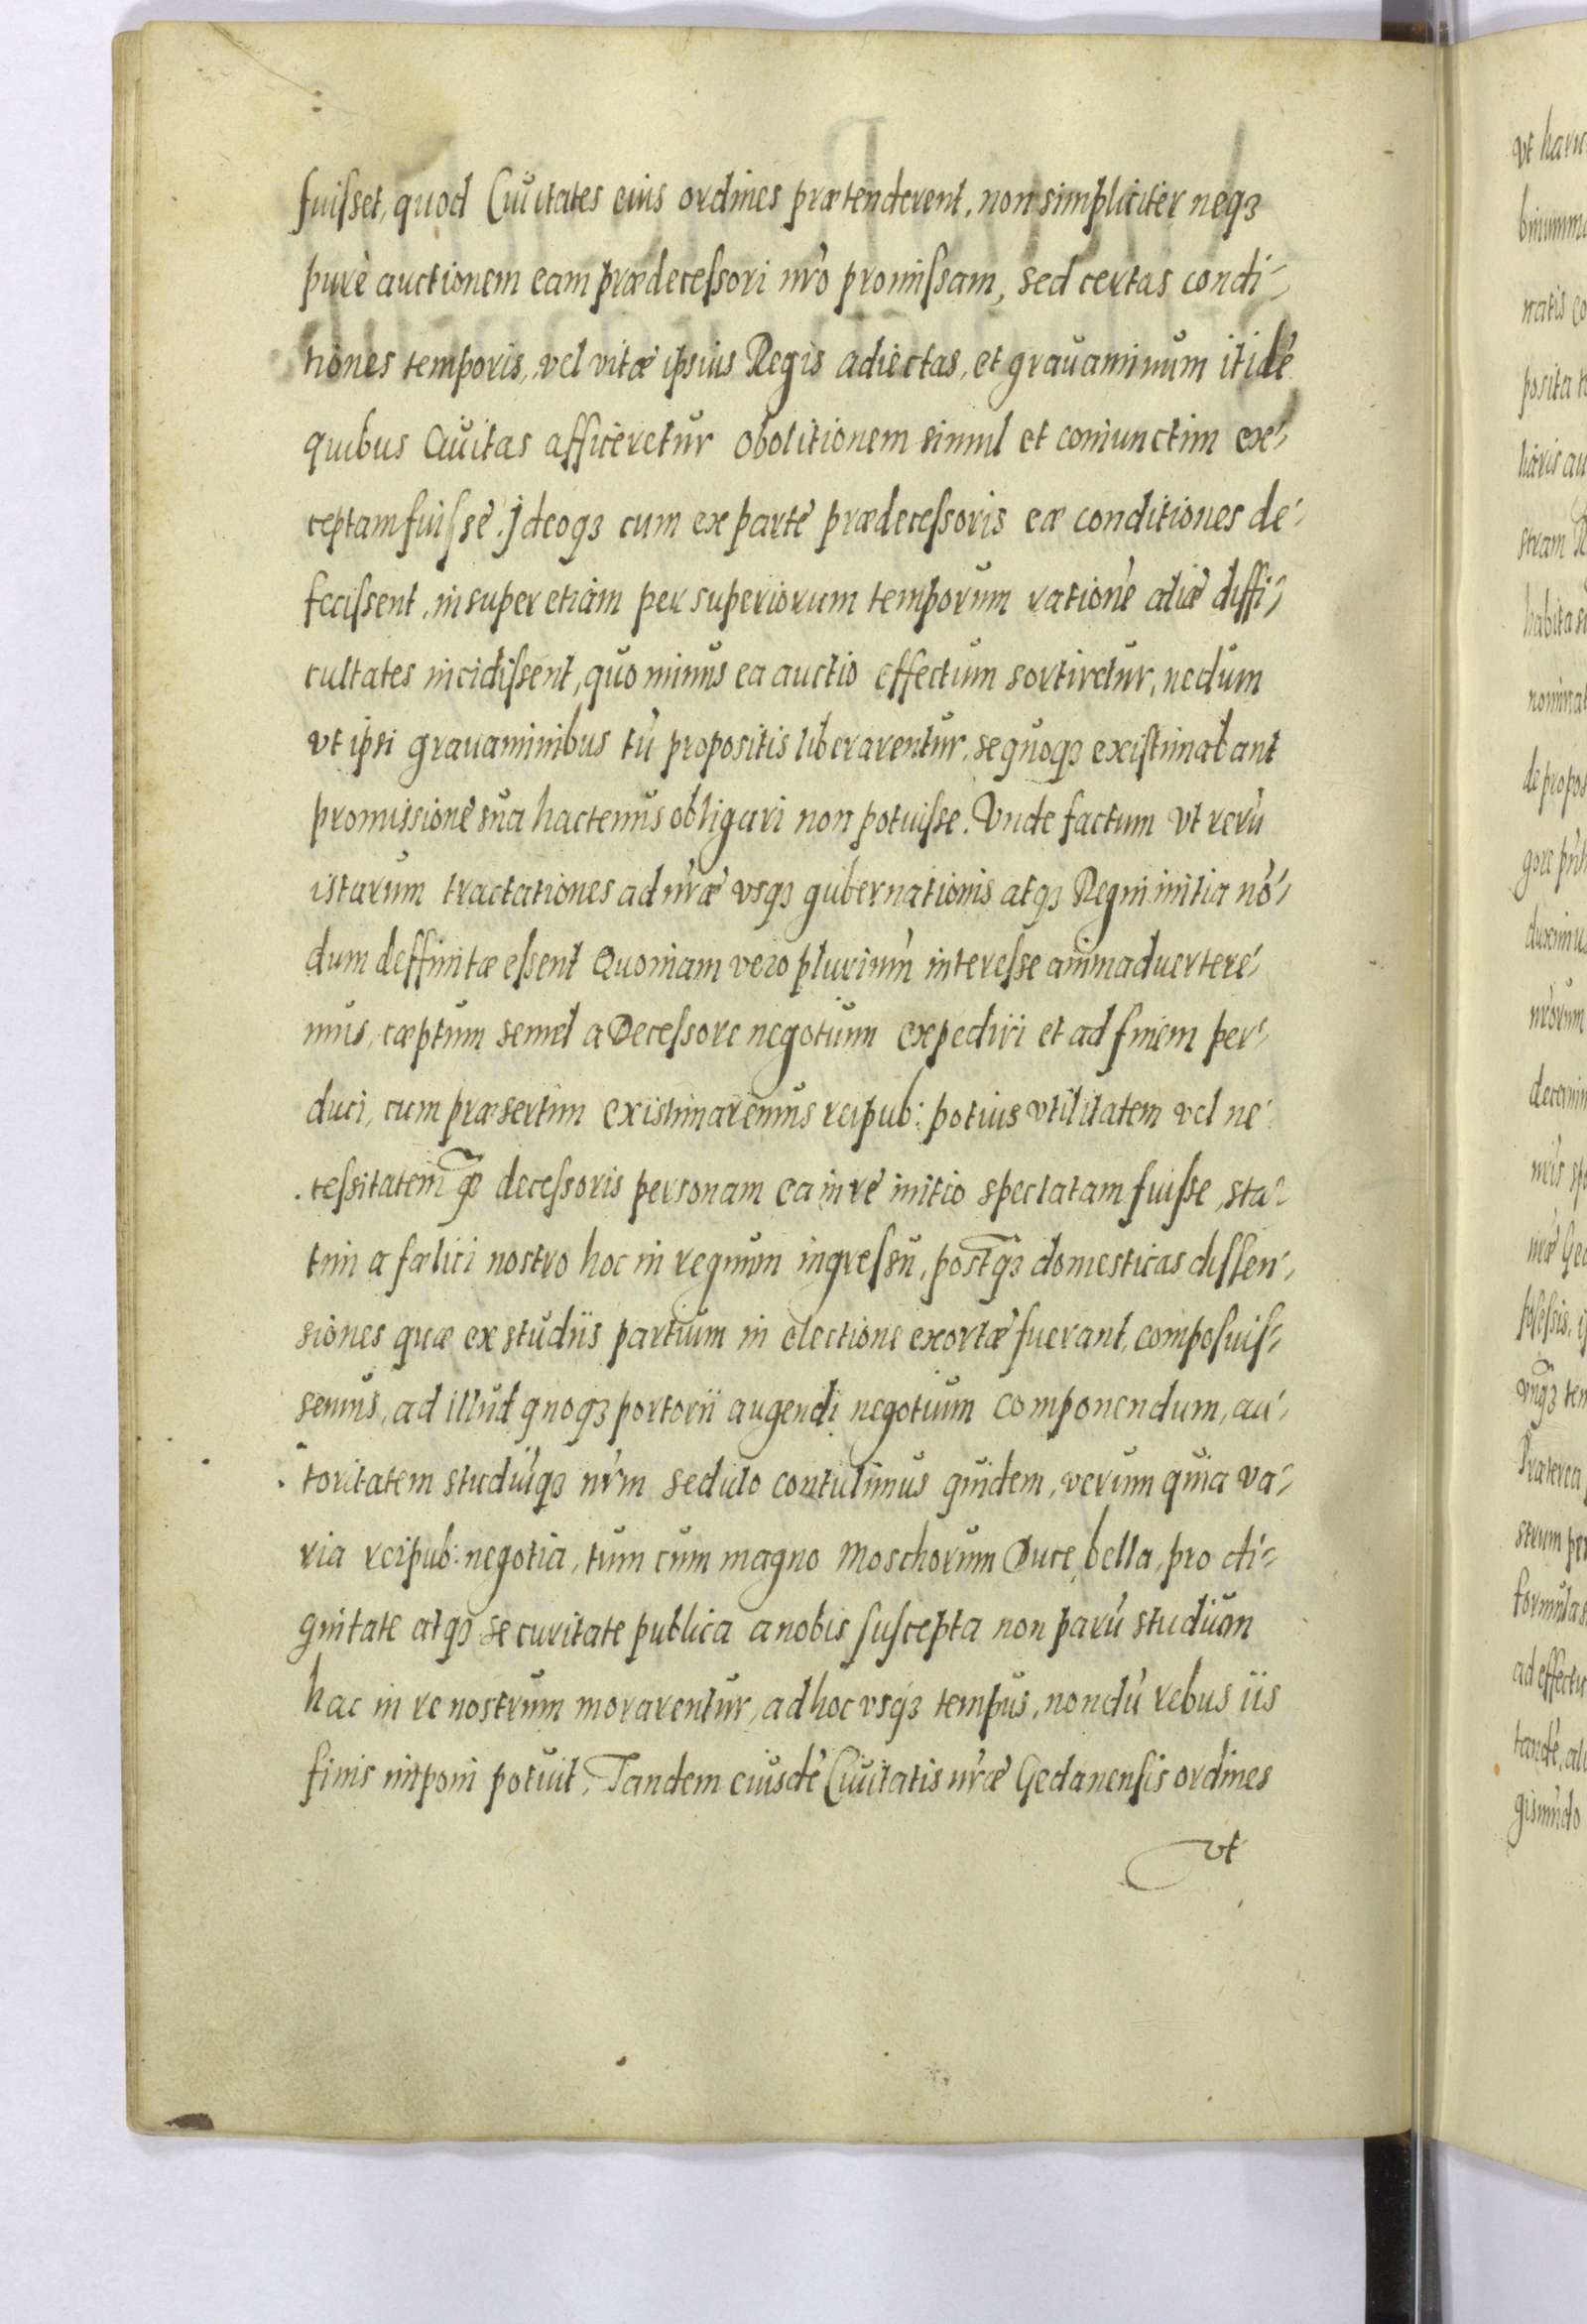 fuisset, quod Ciuitates eius ordines prætenderent, non simpliciter neqȝ
purè auctionem eam prædecessori nr̃o promissam, sed certas condi-
tiones temporis, vel vitæ ipsius Regis adiectas, et grauaminum itidē
quibus Ciuitas afficeretur obolitionem simul et coniunctim ex-
ceptam fuisse. Jdeoqȝ cum ex parte prædecessoris eæ conditiones de-
fecissent, insuper etiam per superiorum temporum rationē aliæ diffi-
cultates incidissent, quo minus ea auctio effectum sortiretur, nedum
vt ipsi grauaminibus tū propositis liberarentur, se quoqȝ existimabant
promissione sua hactenus obligari non potuisse. Vnde factum vt rerū
istarum tractationes ad nr̃æ vsqȝ gubernationis atqȝ Regni initia nō-
dum deffinitæ essent Quoniam vero plurimū interesse animaduertere-
mus, cæptum semel a Decessore negotium expediri et ad finem per-
duci, cum præsertim existimaremus reipub: potius vtilitatem vel ne-
cessitatem q̃ȝ decessoris personam ea in re initio spectatam fuisse, sta-
tim a fælici nostro hoc in regnum ingressu, postq̃ȝ domesticas dissen-
siones quæ ex studiis partium in electione exortæ fuerant, composuis-
semus, ad illud quoqȝ portorii augendi negotium componendum, au-
toritatem studiūqȝ nr̃m sedulo contulimus quidem, verum quia va-
ria reipub: negotia, tum cum magno Moschorum Duce bella, pro di-
gnitate atqȝ securitate publica a nobis suscepta non parū studium
hac in re nostrum morarentur, ad hoc vsqȝ tempus, nondū rebus iis
finis imponi potuit. Tandem eiusdē Ciuitatis nr̃æ Gedanensis ordines
vt